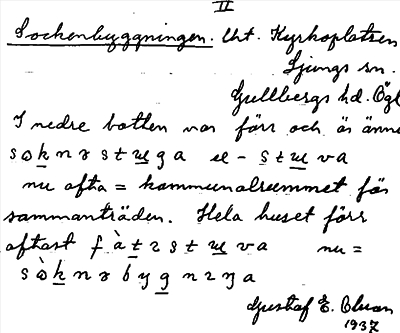 II
Sockenbyggningen. Utt. Kyrkoplatsen
Ljungs sn.
Gullbergs hd. Ögl
I nedre botten var förr och är ännu
sɷknəstuga el - stuva
nu ofta = kommunalrummet för
sammanträden. Hela huset förr
oftast fàtəstuva nu =
sɷ̀knəbygnɪŋa
Gustaf E.
1937